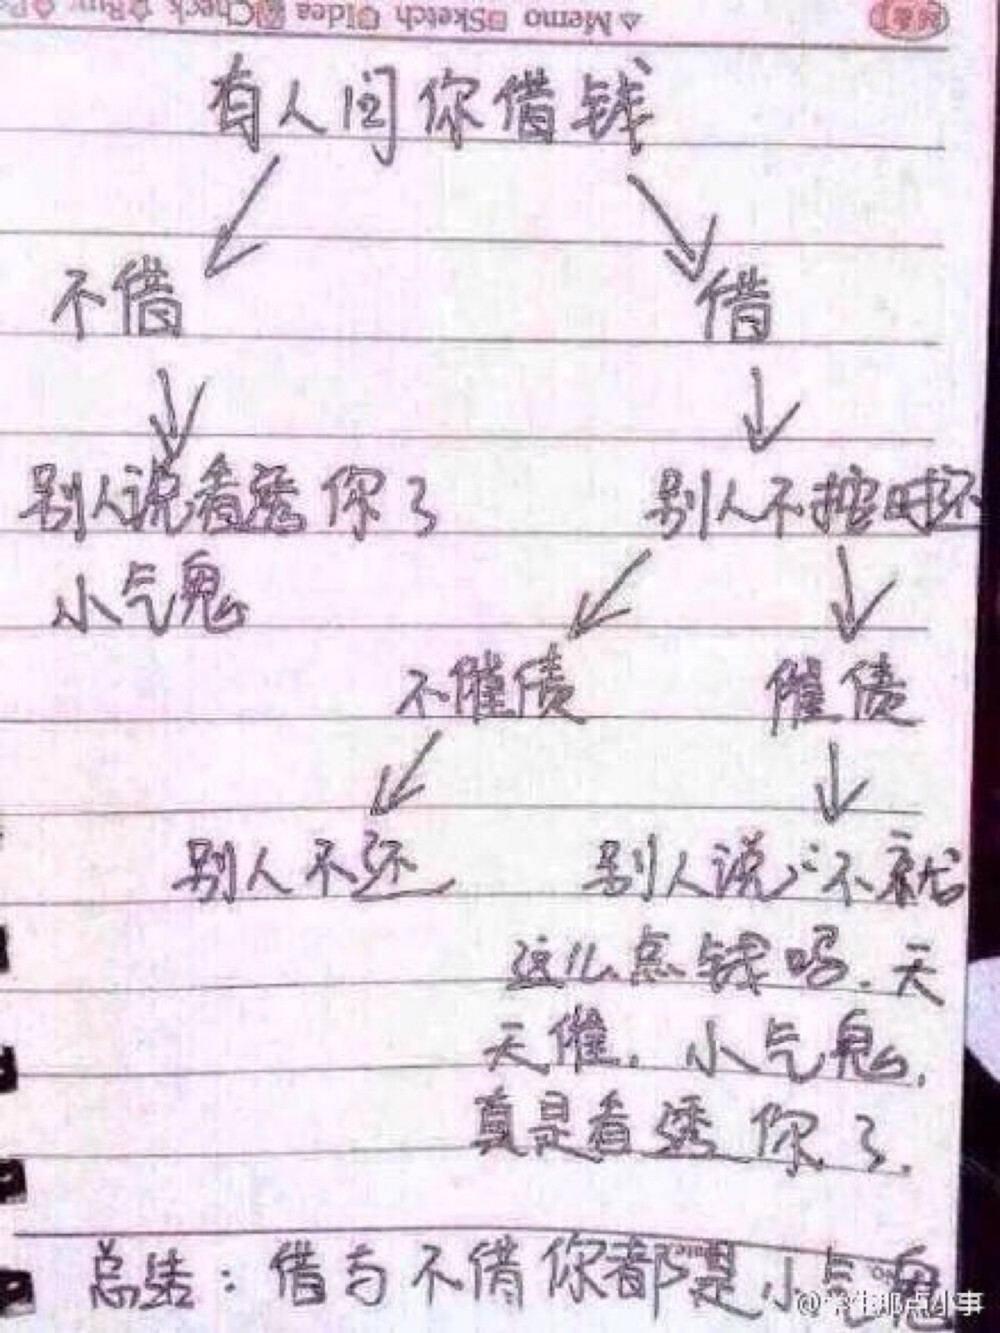 △Memo □Sketch □Idea □Check ☆Buy
有人问你借钱
不借
借
别人说看透你了
别人不按时还
小气鬼
不催债
催债
别人不还
别人说:不就
这么点钱吗.天
天催.小气鬼.
真是看透你了.
总结:借与不借你都是小气鬼
@学生那点小事